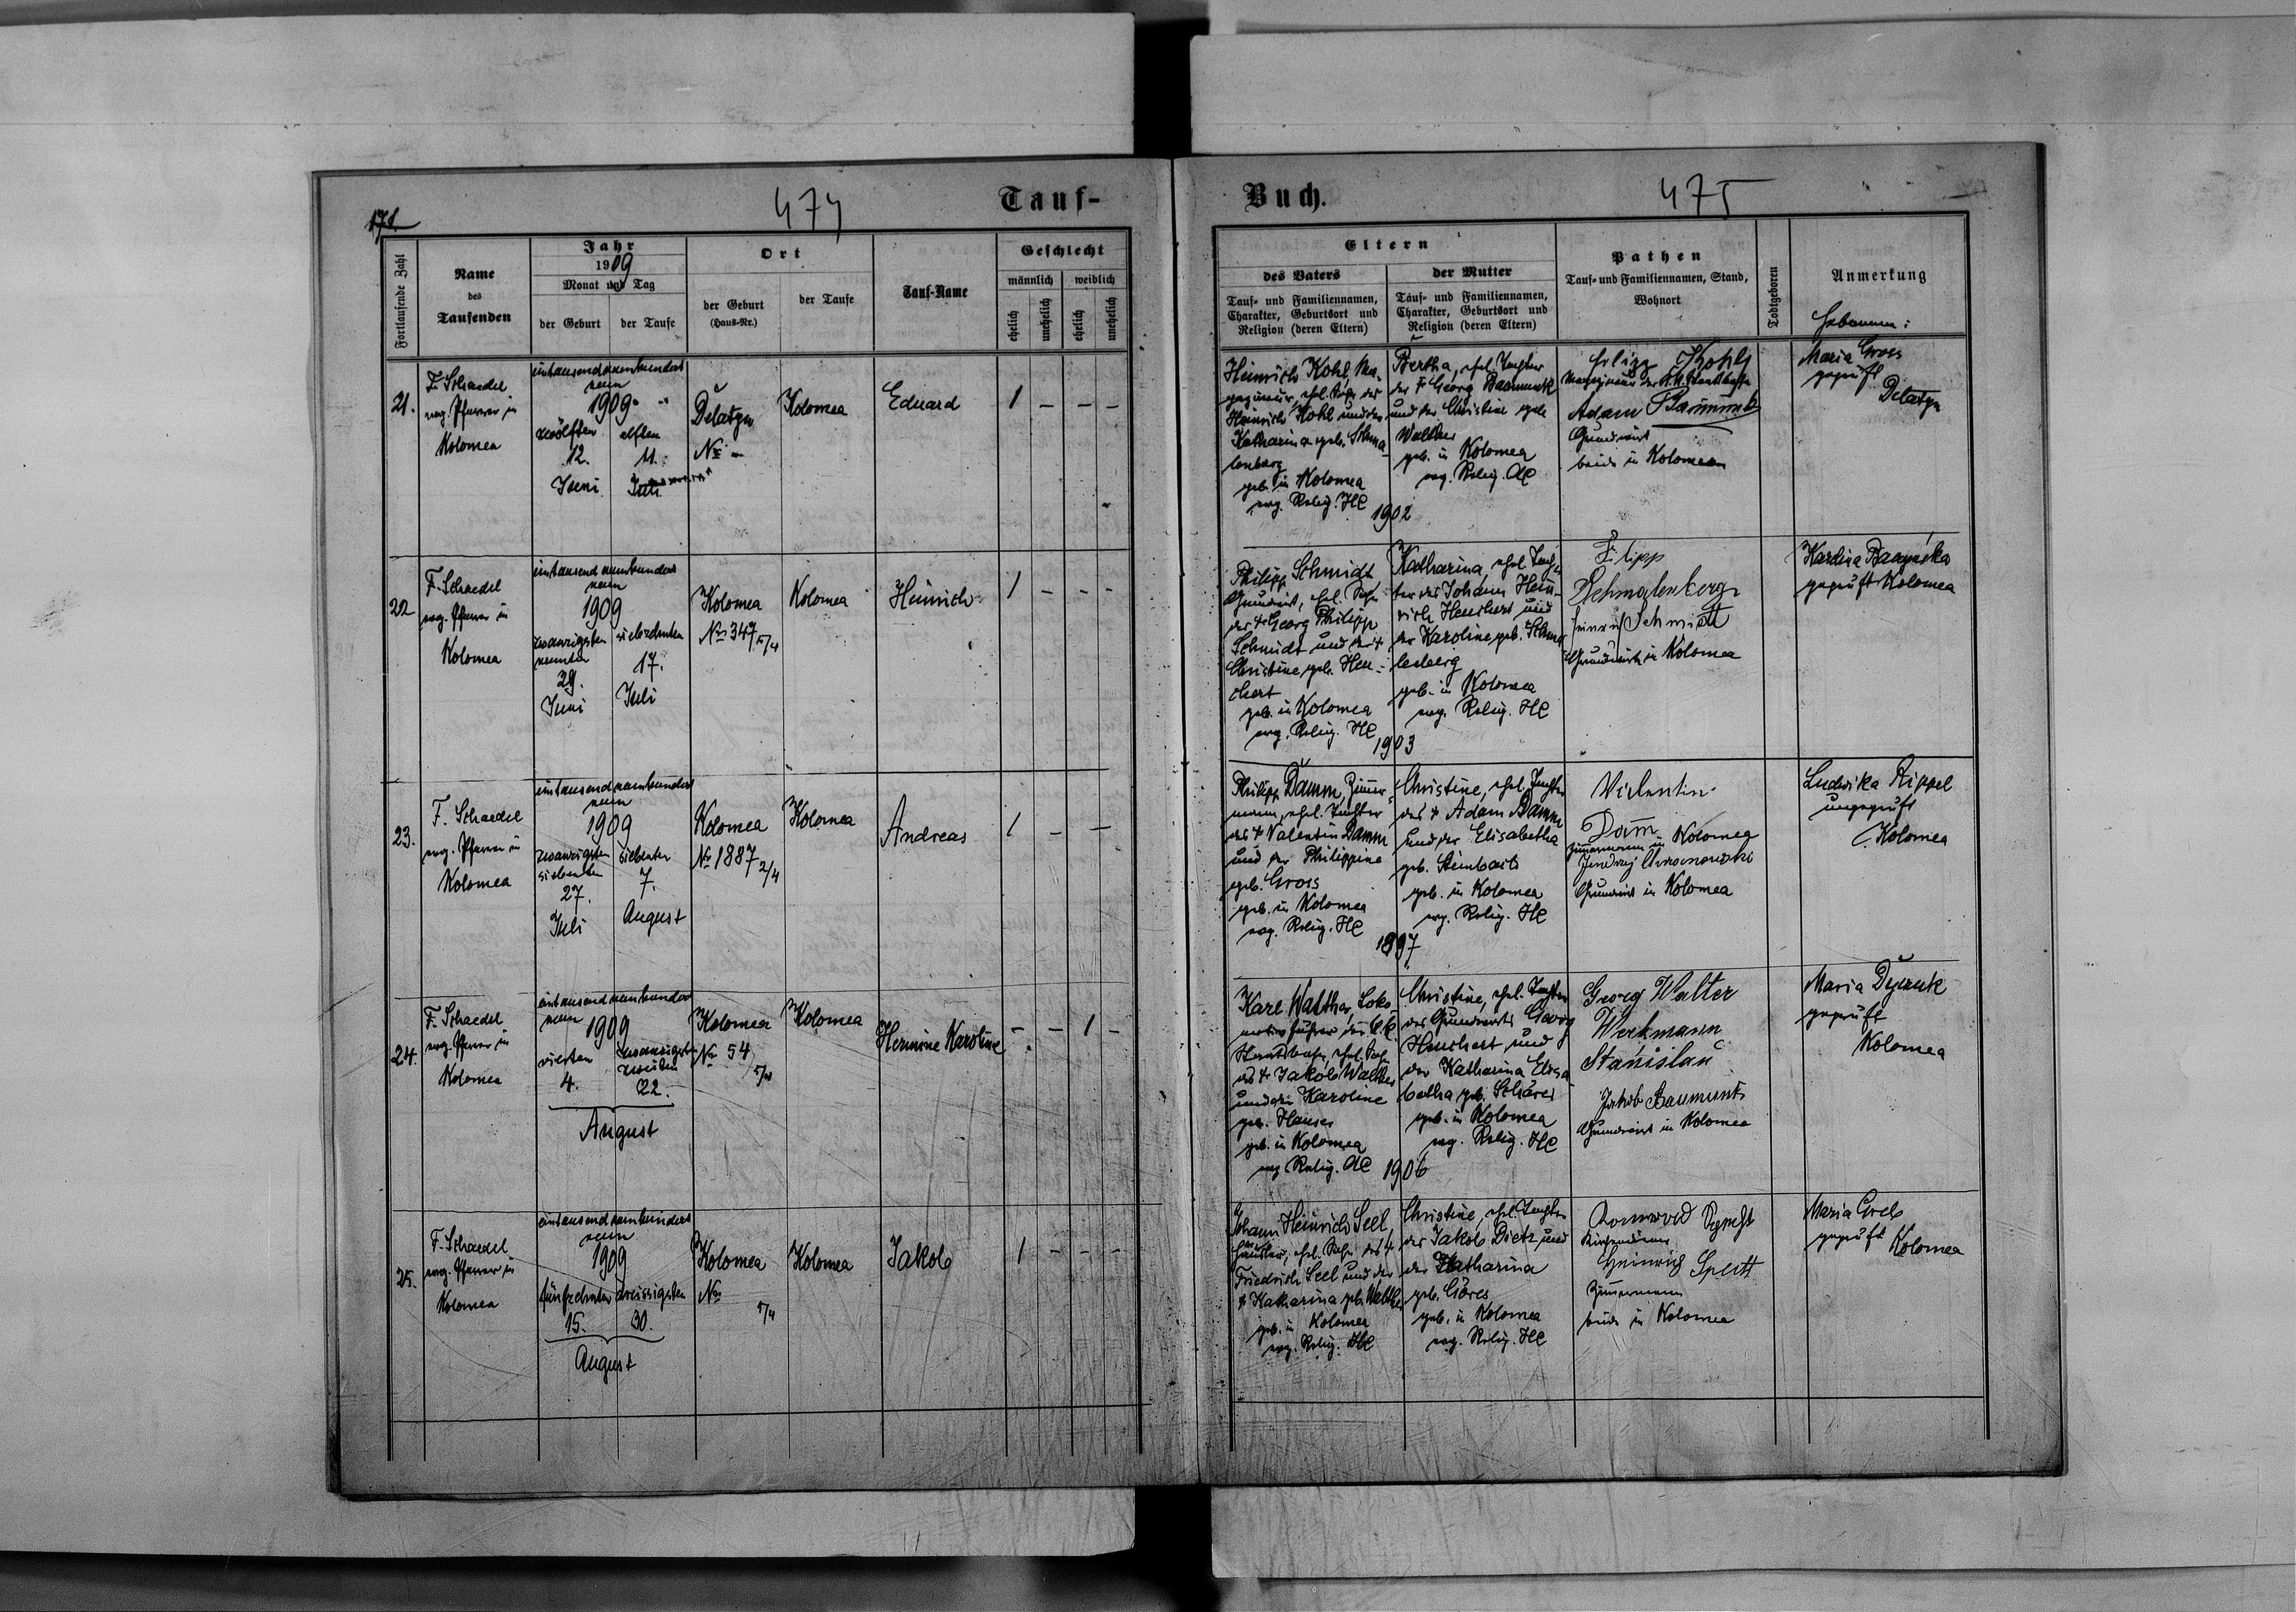 178.
474
Tauf-
Fortlaufende Zahl
Name
des
Taufenden
Jahr
1909
Monat und Tag
der Geburt
der Taufe
Ort
der Geburt
(Haus-Nr.)
der Taufe
Tauf-Name
Geschlecht
männlich
weiblich
ehelich
unehelich
ehelich
unehelich
21.
F. Schaedel
evg. Pfarrer in
Kolomea
eintausendneunhundert
neun
1909
zwölften
12.
Juni
elften
11.
Juli
Delatyn
No -
Kolomea
Eduard
1 - - -
22
F. Schaedel
evg. Pfarrer in
Kolomea
eintausendneunhundert
neun
1909
zwanzigsten
neunten
29.
Juni
siebzehnten
17.
Juli
Kolomea
No 347 5/4
Kolomea
Heinrich
1 - - -
23.
F. Schaedel
evg. Pfarrer in
Kolomea
eintausendneunhundert
neun
1909
zwanzigsten
siebenten
27.
Juli
siebenten
7.
August
Kolomea
No 1887 2/4
Kolomea
Andreas
1 - -
24.
F. Schaedel
evg. Pfarrer in
Kolomea
eintausendneunhundert
neun 1909
vierten
4.
zwanzigsten
zweiten
22.
August
Kolomea
No 54
Kolomea
Hermine Karoline
- - 1 -
25.
F. Schaedel
evg. Pfarrer in
Kolomea
eintausendneunhundert
neun
1909
fünfzehnten
15.
dreissigsten
30.
August
Kolomea
No
5/4
Kolomea
Jakob
1 - - -
Buch.
475
Eltern
des Vaters
Tauf- und Familiennamen,
Charakter, Geburtsort und
Religion (deren Eltern)
der Mutter
Tauf- und Familiennamen,
Charakter, Geburtsort und
Religion (deren Eltern)
Pathen
Tauf- und Familiennamen, Stand,
Wohnort
Todtgeboren
Anmerkung
Hebamme:
Heinrich Kohl, Ma-
gazineur, ehel. Sohn des
Heinrich Kohl und der
Katharina geb. Schma-
lenberg
geb. in Kolomea
evg. Relig. HC
Bertha, ehel. Tochter
des Georg Baumunk
und der Christine geb.
Walther
geb. in Kolomea
evg. Relig. AC
1902
Kohly
Adam Baumunk
Grundwirt
beide in Kolomea
Maria Gross
geprüft
Delatyn
Philipp Schmidt
Grundwirt, ehel. Sohn
des + Georg Philipp
Schmidt und der +
Christine geb. Heu-
chert
geb. in Kolomea
evg. Relig. HC
Katharina, ehel. Toch-
ter des Johann Hein-
rich Heuchert und
der Karoline geb. Schma
lenberg
geb. in Kolomea
evg. Relig. HC
1903
Filipp
Schmalenberg
Heinrich Schmidt
Grundwirte in Kolomea
geprüft Kolomea
Philipp Damm, Zimer-
mann, ehel. Tochter
des + Valentin Damm
und der Philippine
geb. Gross
geb. in Kolomea
evg. Relig. HC
Christine, ehel. Tochter
des + Adam Damm
und der Elisabetha
geb. Steinbach
geb. in Kolomea
evg. Relig. HC
1897
Valentin
Dam
Zimmermann in Kolomea
Grundwirt in Kolomea
Ludwika Rippel
ungeprüft
Kolomea
Karl Walther, Loko-
motivführer der k.k.
Staatsbahn, ehel. Sohn
des + Jakob Walther
und der Karoline
geb. Hauser
geb. in Kolomea
evg. Relig. AC
Christine, ehel. Tochter
des Grundwirts Georg
Heuchert und
der Katharina Elisa
betha geb. Schärer
geb. in Kolomea
evg. Relig. HC
1906
Georg Walter
Werkmann
Stanislau
Jakob Baumunk
Grundwirt in Kolomea
geprüft
Kolomea
Johann Heinrich Seel,
Häusler, ehel. Sohn des +
Friedrich Seel und der
+ Katharina geb. Walther
geb. in Kolomea
evg. Relig. HC
Christine, ehel. Tochter
des Jakob Dietz und
der Katharina
geb. Göres
geb. in Kolomea
evg. Relig. HC
Kirchendiener
Heinrich Spett
Zimmermann
beide in Kolomea
geprüft
Kolomea